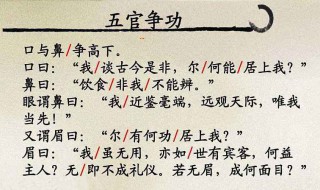 五官争功
口与鼻/争高下。
口曰：“我/谈古今是非，尔/何能/居上我？”
鼻曰：“饮食/非我/不能辨。”
眼谓鼻曰：“我/近鉴毫端，远观天际，唯我
当先！”
又谓眉曰：“尔/有何功/居上我？”
眉曰：“我/虽无用，亦如/世有宾客，何益
主人？无/即不成礼仪。若无眉，成何面目？”